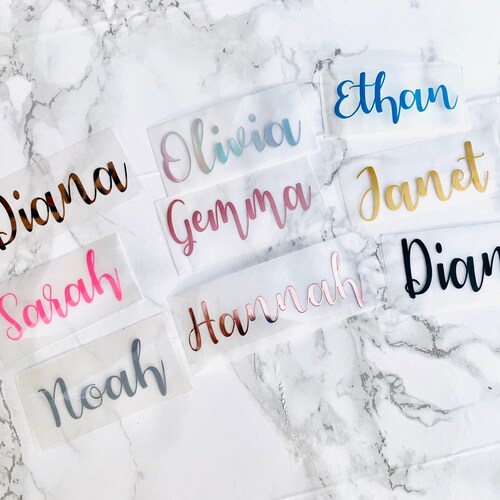 Ethan
Olivia
Diana
Janet
Gemma
Sarah
Dian
Hannah
Noah